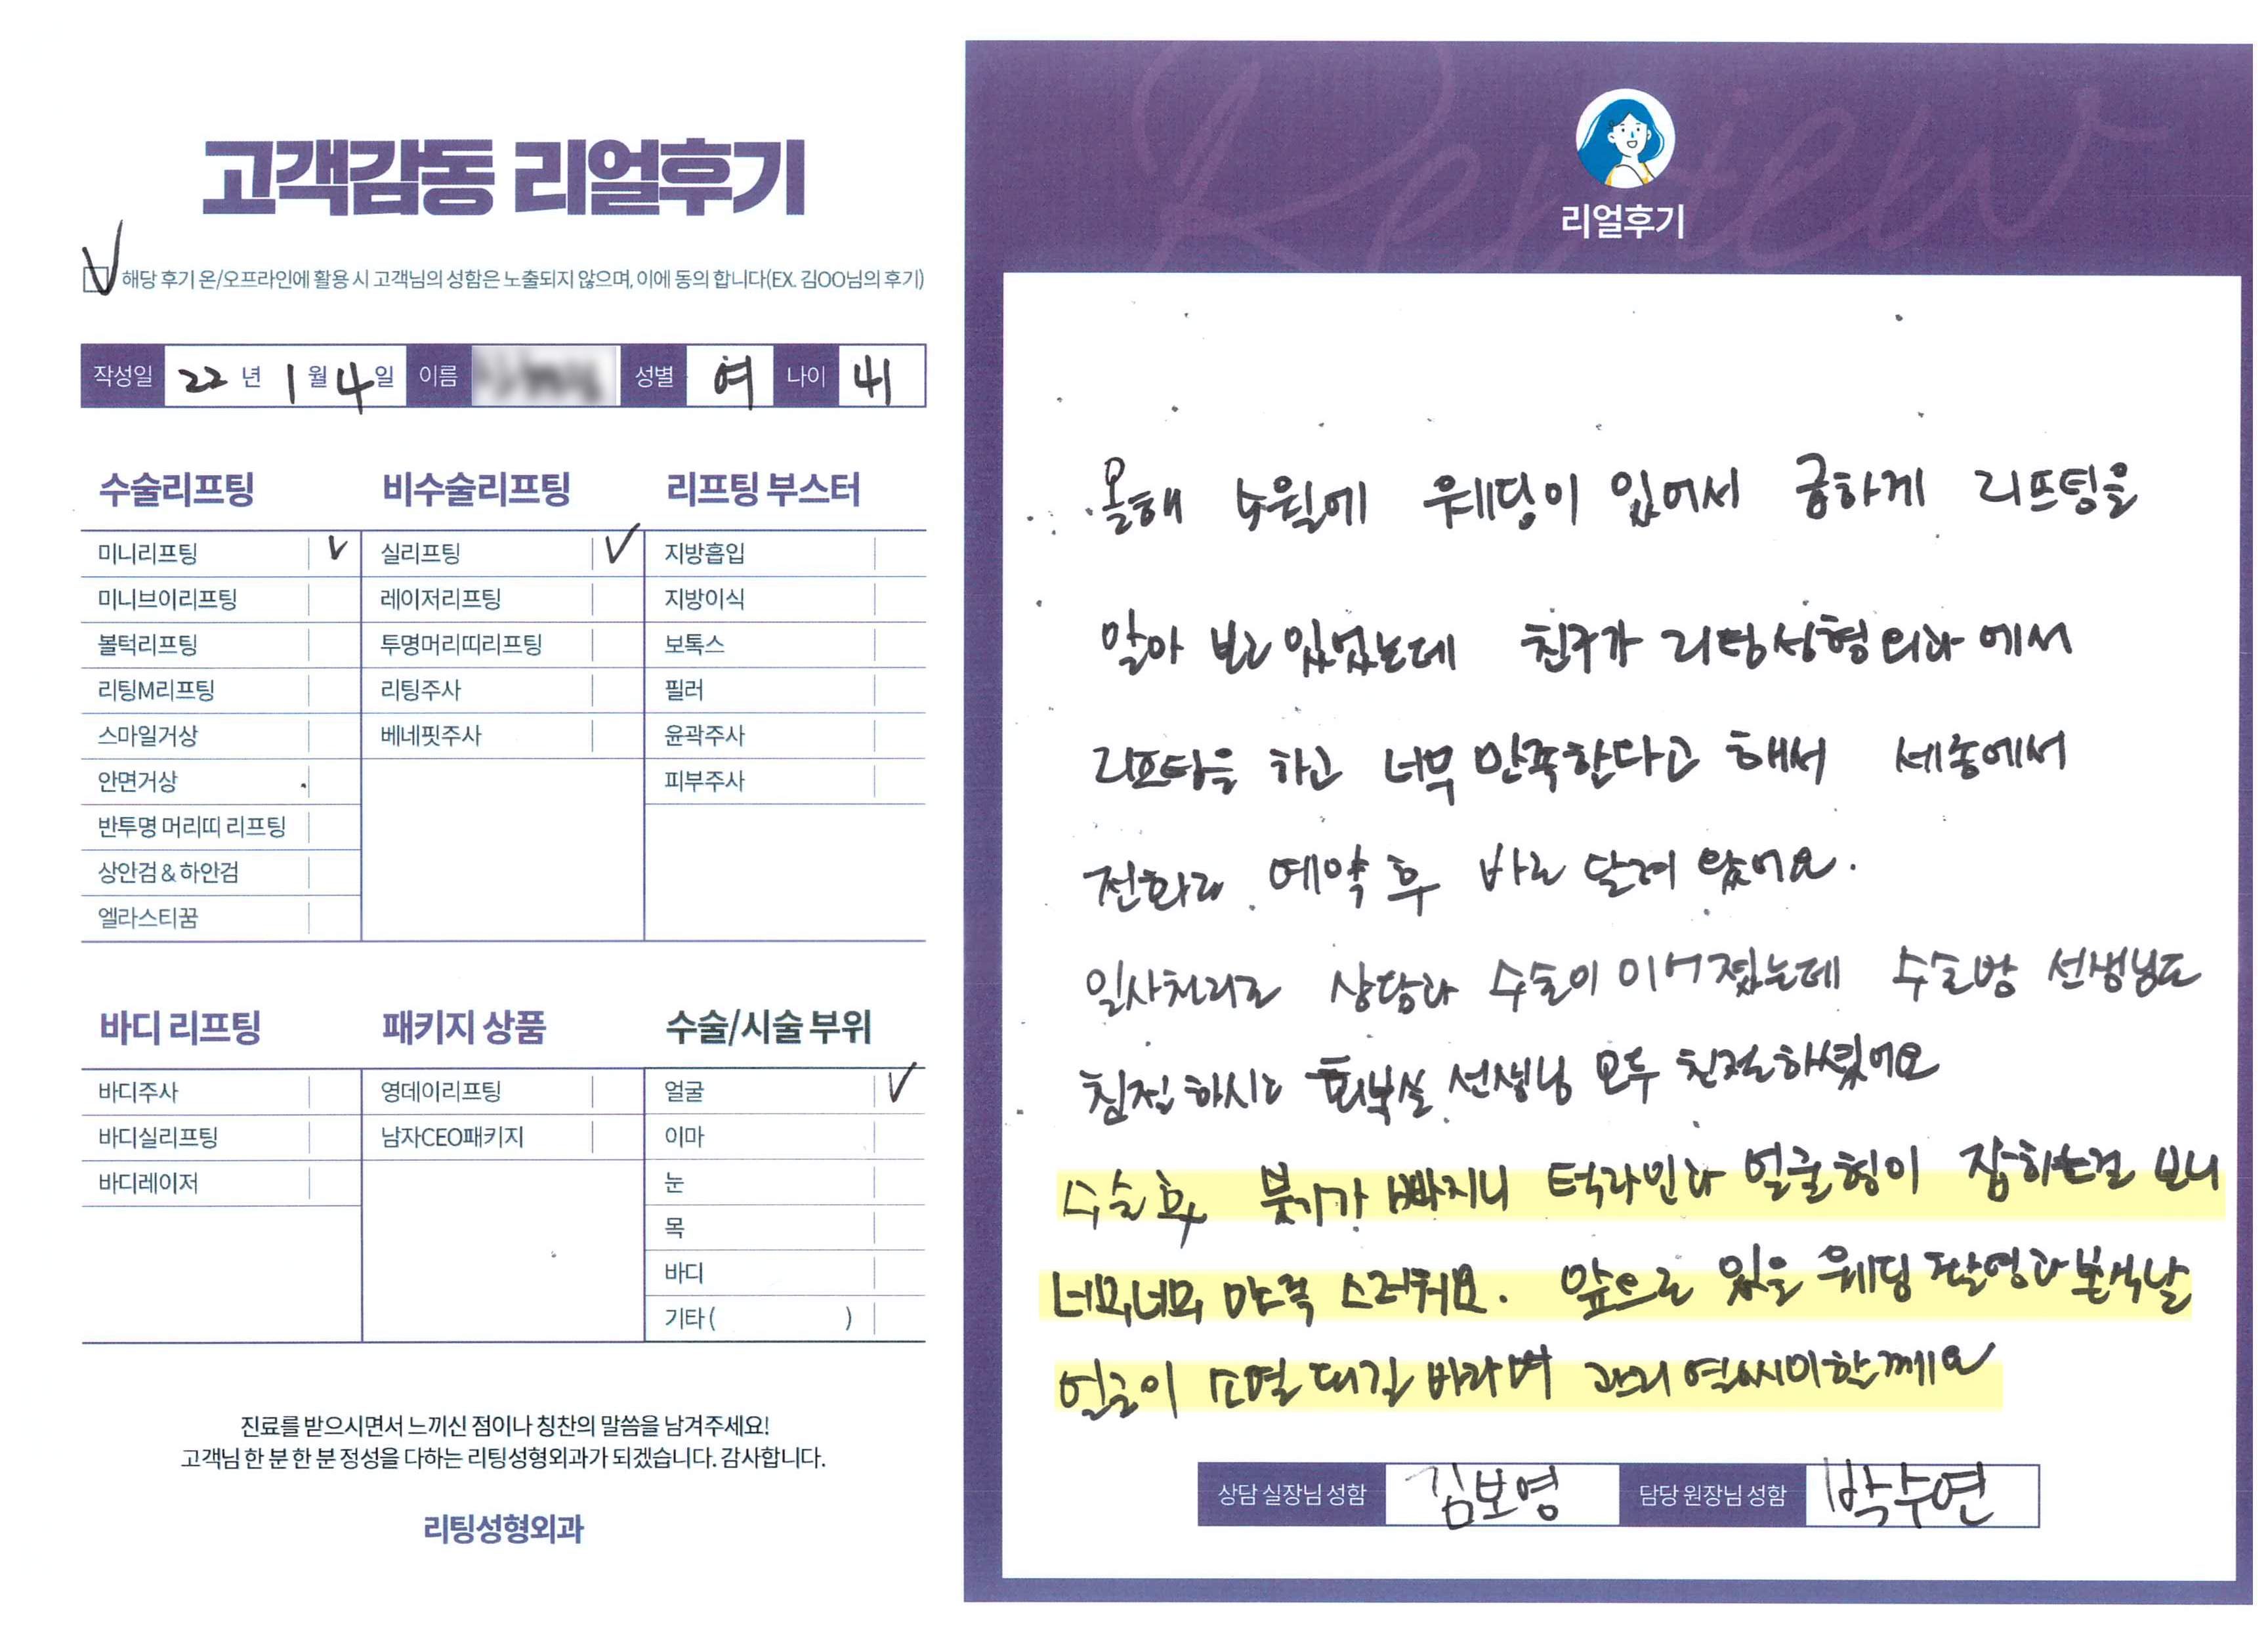 고객감동 리얼후기
해당 후기 온/오프라인에 활용 시 고객님의 성함은 노출되지 않으며, 이에 동의 합니다(EX. 김OO님의 후기)
작성일 22 년 1 월 4 일 이름 성별 여 나이 41
수술리프팅
미니리프팅 V
미니브이리프팅
볼턱리프팅
리팅M리프팅
스마일거상
안면거상
반투명 머리띠 리프팅
상안검 & 하안검
엘라스티꿈
비수술리프팅
실리프팅 V
레이저리프팅
투명머리띠리프팅
리팅주사
베네핏주사
리프팅 부스터
지방흡입
지방이식
보톡스
필러
윤곽주사
피부주사
바디 리프팅
바디주사
바디실리프팅
바디레이저
패키지 상품
영데이리프팅
남자CEO패키지
수술/시술 부위
얼굴 V
이마
눈
목
바디
기타 ( )
진료를 받으시면서 느끼신 점이나 칭찬의 말씀을 남겨주세요!
고객님 한 분 한 분 정성을 다하는 리팅성형외과가 되겠습니다. 감사합니다.
리팅성형외과
Review
리얼후기
올해 4월에 웨딩이 있어서 급하게 리프팅을
알아 보고 있었는데 친구가 리팅성형외과에서
리프팅을 하고 너무 만족한다고 해서 세종에서
전화로 예약 후 바로 달려 왔어요.
일사처리로 상담과 수술이 이어졌는데 수술방 선생님도
친절하시고 회복실 선생님 모두 친절하셨어요
수술 후 붓기가 빠지니 턱라인과 얼굴형이 잡히는걸 보니
너무너무 만족 스러워요. 앞으로 있을 웨딩 촬영과 본식날
얼굴이 소멸 되길 바라며 관리 열씨미할께요
상담 실장님 성함 김보영 담당 원장님 성함 박수연